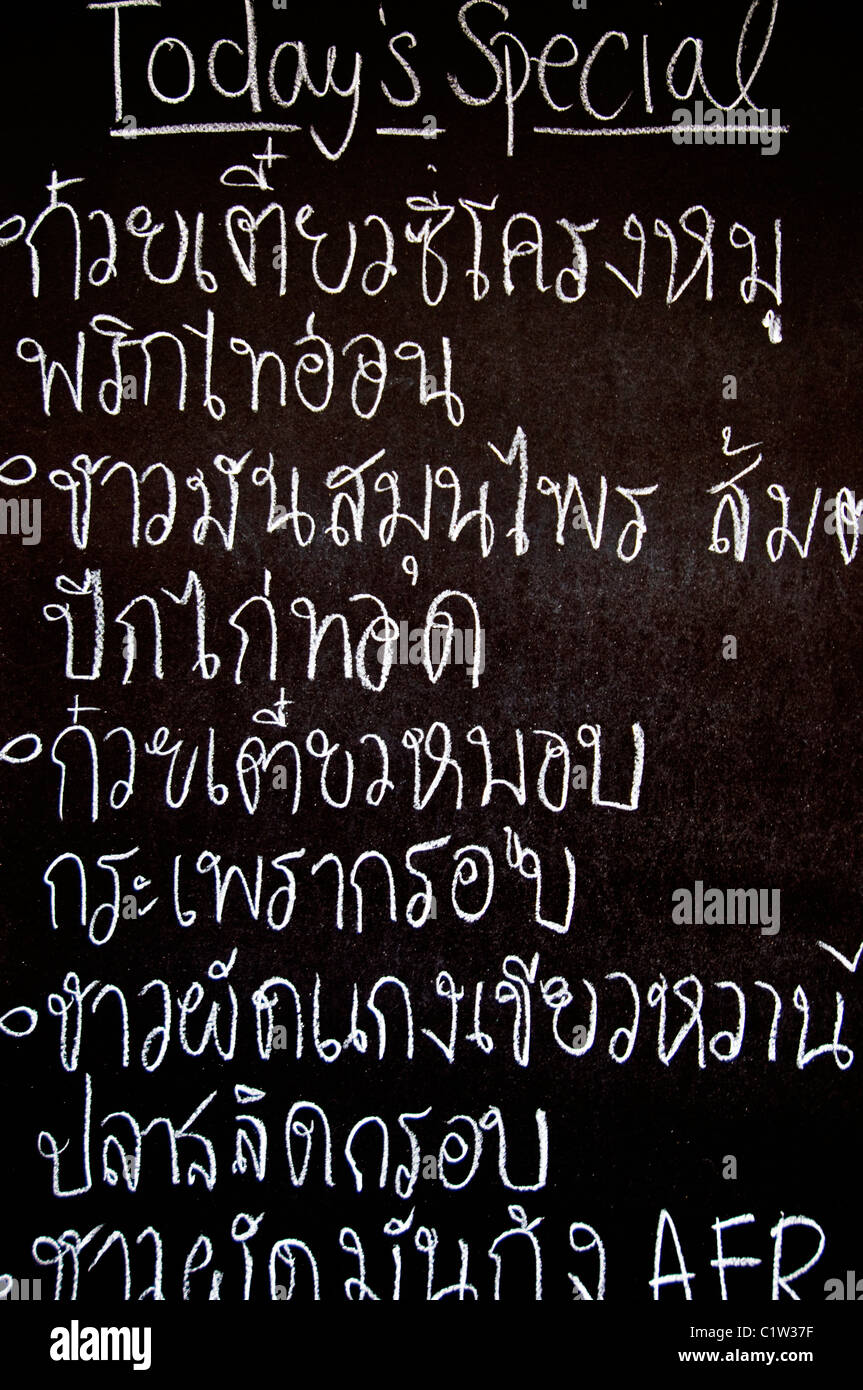 Today's Special
ก๋วยเตี๋ยวซี่โครงหมู
พริกไทอ่อน
ขาวมันสมุนไพร ส้มต
ปีกไก่ทอด
ก๋วยเตี๋ยวหมอบ
กระเพรากรอบ
ขาวผัดแกงเขียวหวาน
ปลาสลิดกรอบ
ขาวผัดมันกุ้ง AFR
alamy
Image ID: C1W37F
www.alamy.com